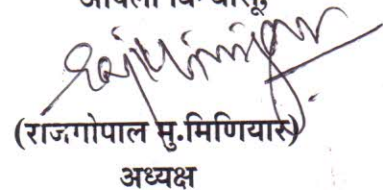 आपला विश्वासू,
(राजगोपाल मु.मिणियार)
अध्यक्ष